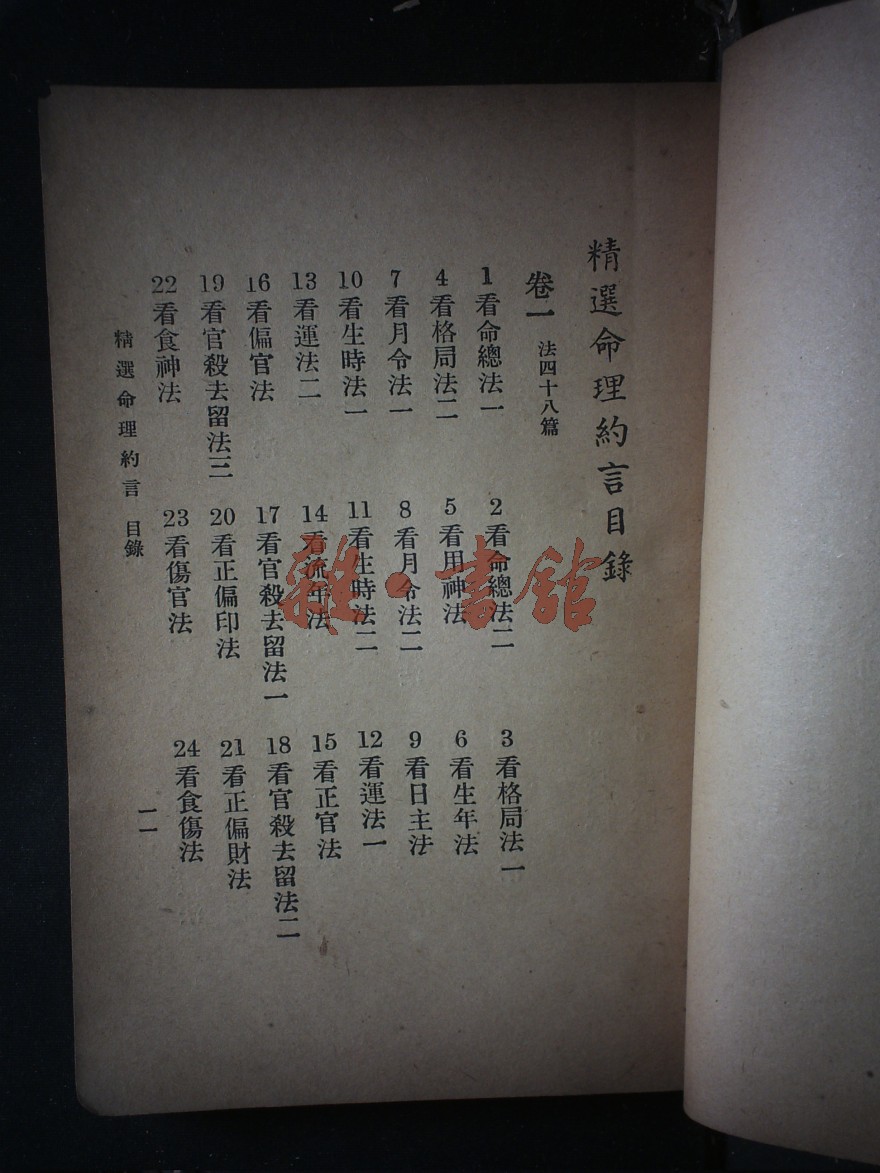 精選命理約言目錄
卷一 法四十八篇
1看命總法一
2看命總法二
3看格局法一
4看格局法二
5看用神法
6看生年法
7看月令法一
8看月令法二
9看日主法
10看生時法一
11看生時法二
12看運法一
13看運法二
14看流年法
15看正官法
16看偏官法
17看官殺去留法一
18看官殺去留法二
19看官殺去留法三
20看正偏印法
21看正偏財法
22看食神法
23看傷官法
24看食傷法
精選命理約言 目錄
一一
雜·書館